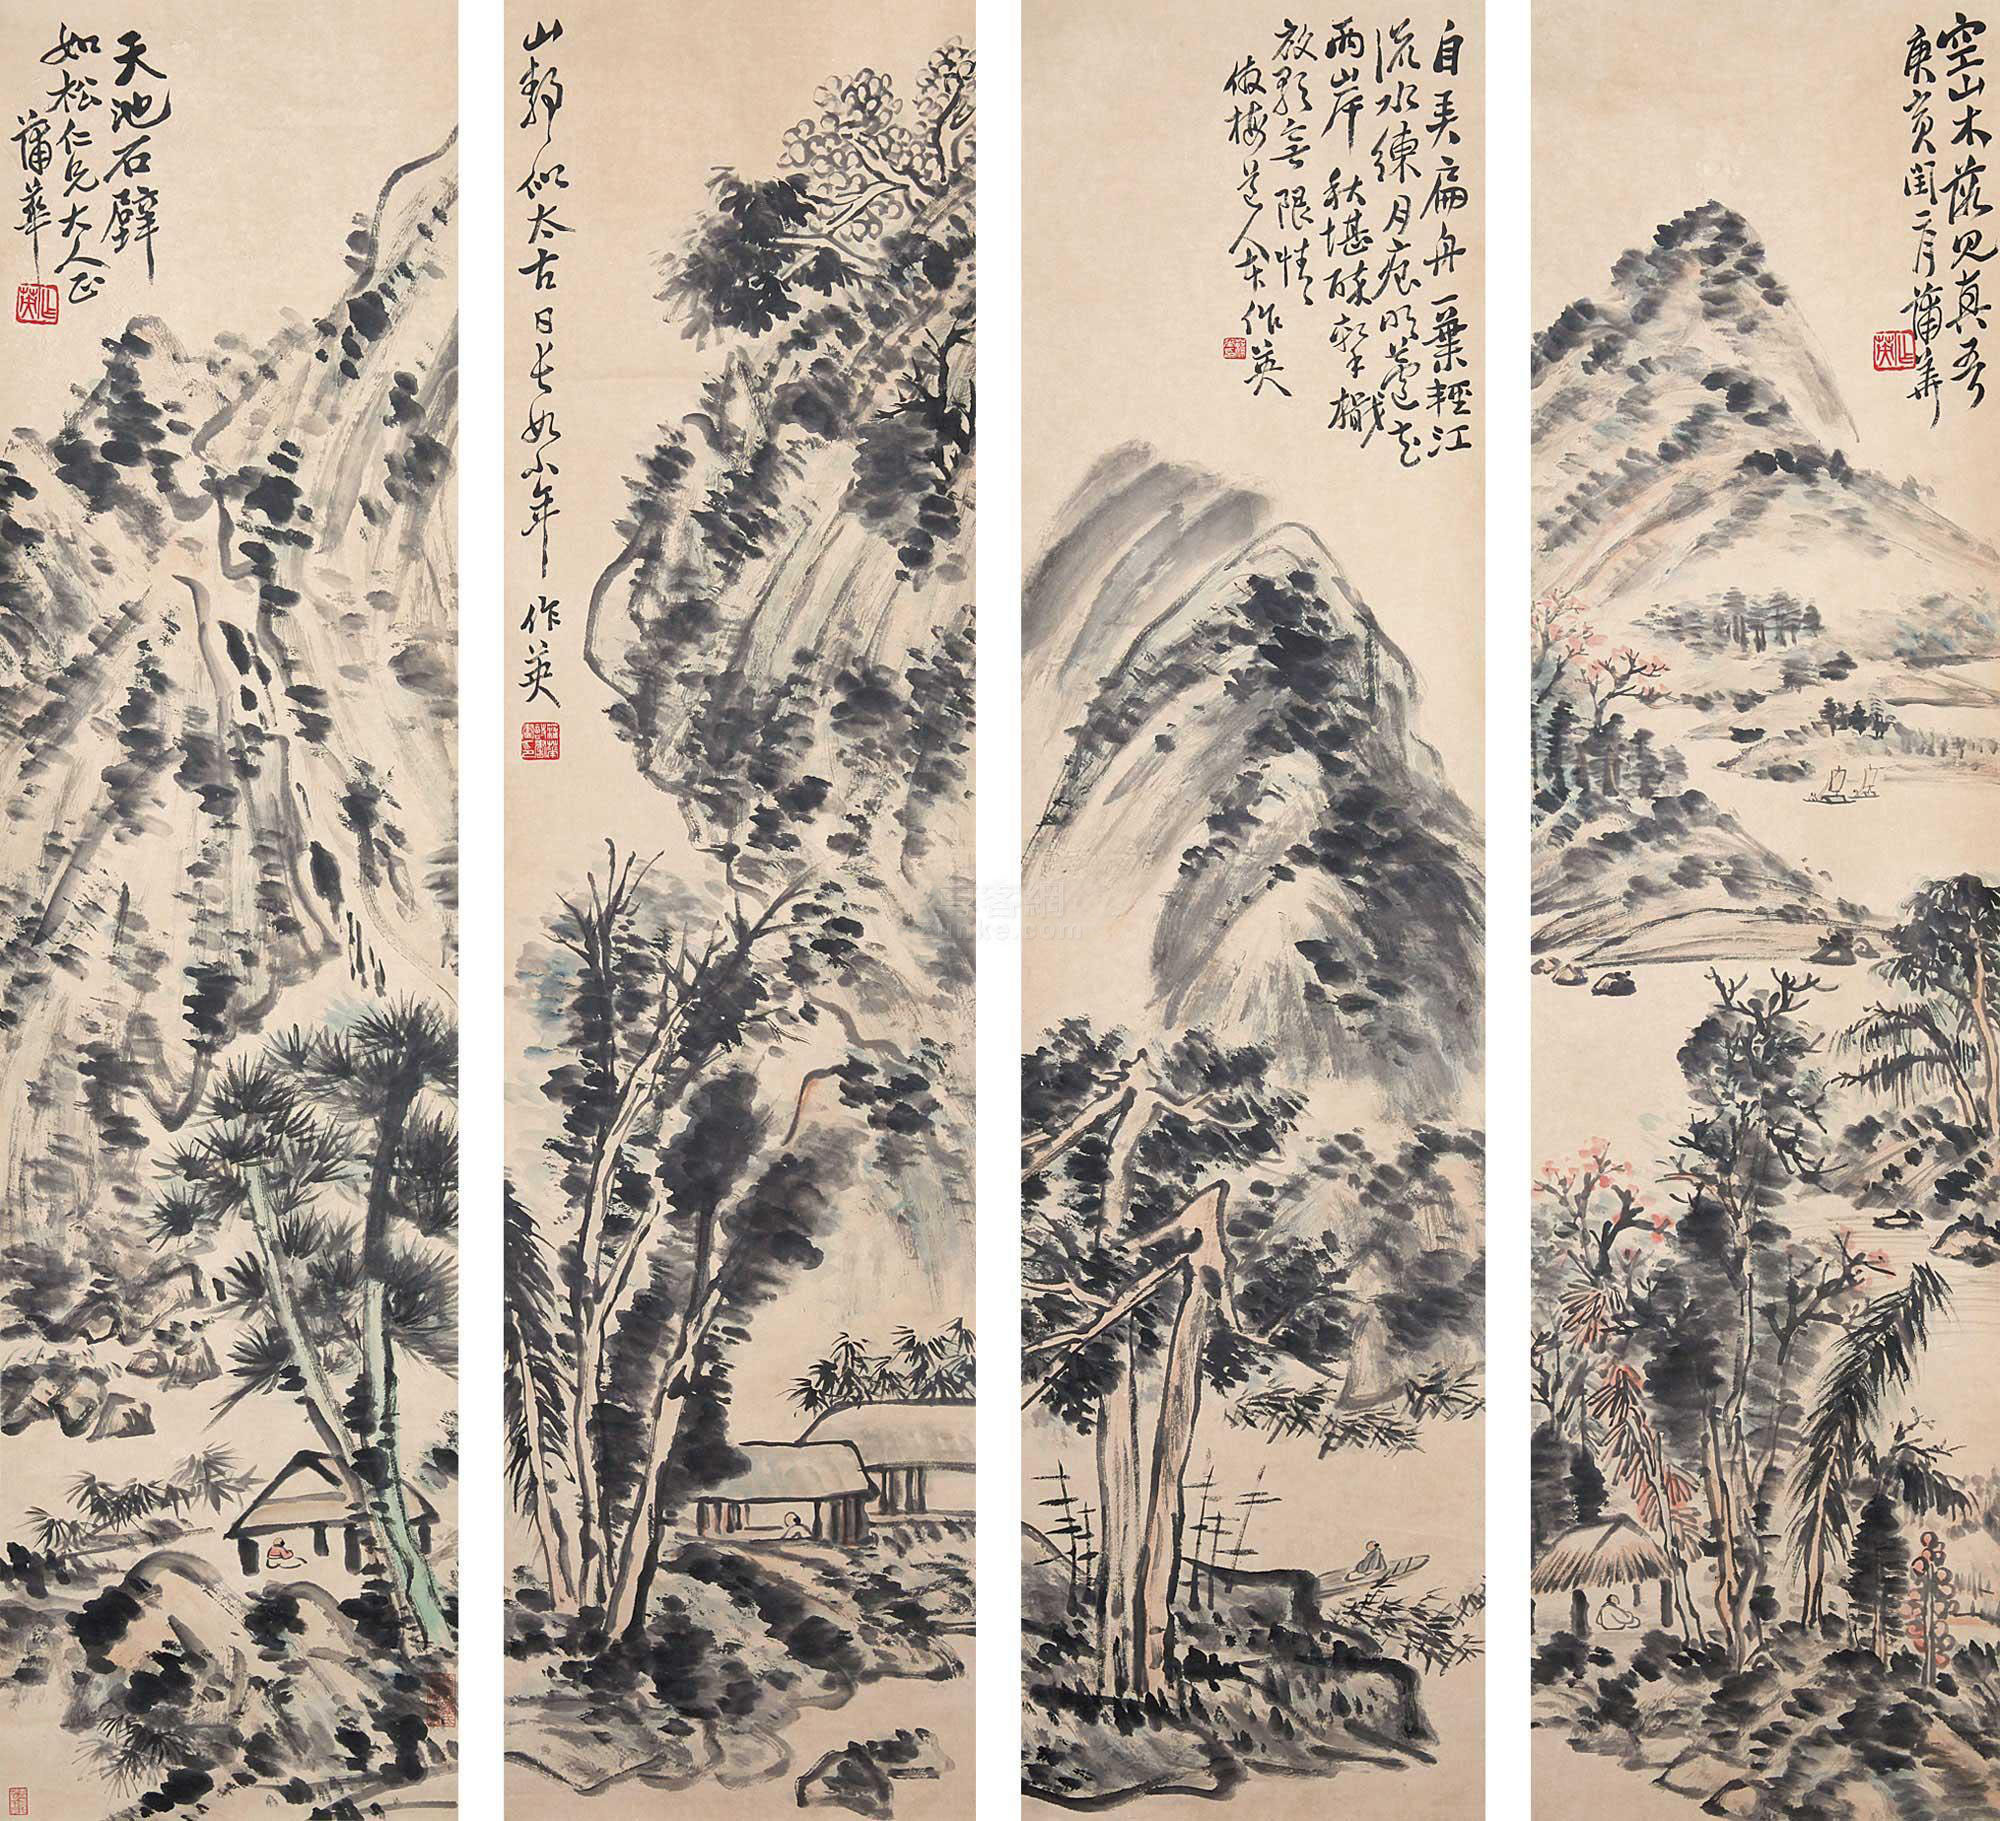 空山木落見真吾
庚寅閏二月 蒲華
作英
自弄扁舟一葉輕江
流水練月痕明蘆花
兩岸秋堪醉擊檝
放歌無限情
倣梅道人本 作英
山靜似太古日長如小年 作英
天池石壁
如松仁兄大人正
蒲華
作英
尊客網
zunke.com